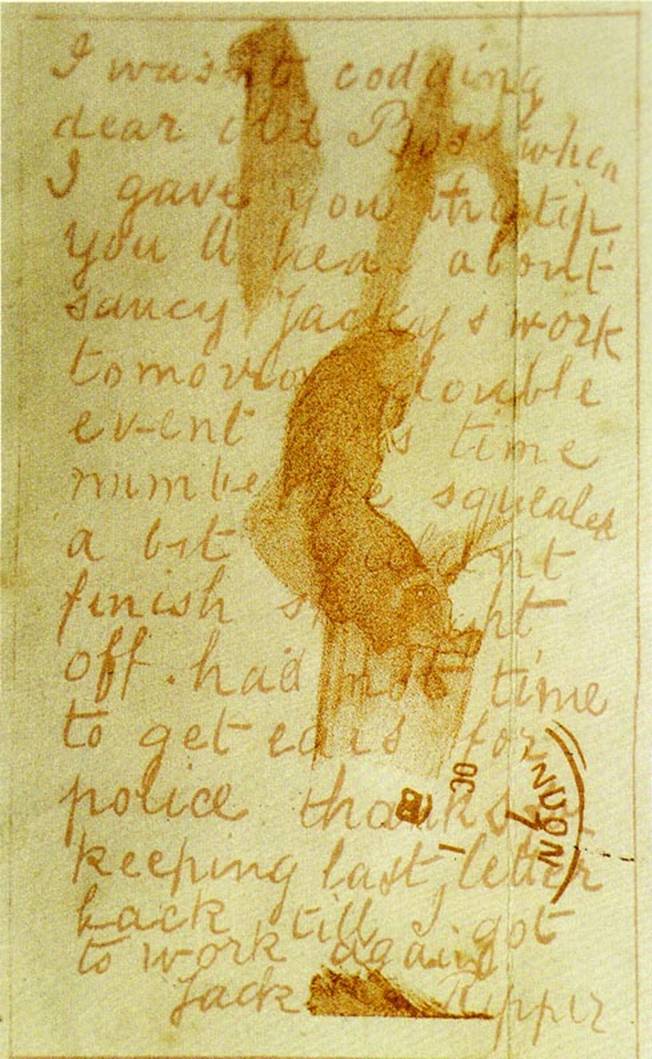 I wasnt codding
dear old Boss when
I gave you the tip
you ll hear about
saucy Jackys work
tomorrow double
event time
squealed
a bit couldnt
finish
off . had not time
to get ears for
police thanks
keeping last letter
back till I got
to work again
Jack Ripper
30